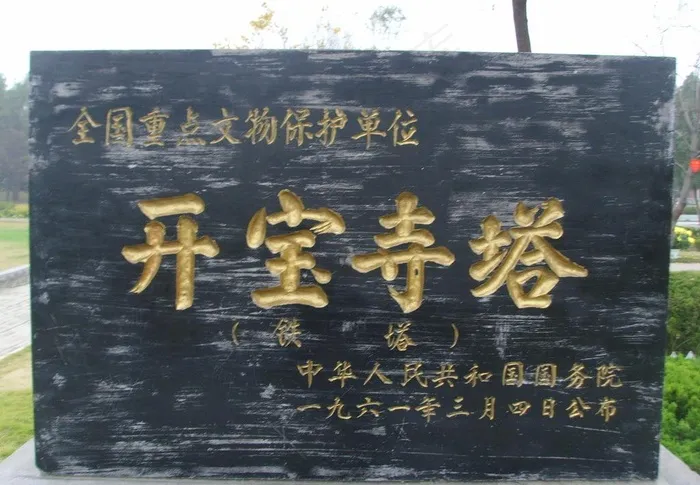 全国重点文物保护单位
开宝寺塔
(铁塔)
中华人民共和国国务院
一九六一年三月四日公布